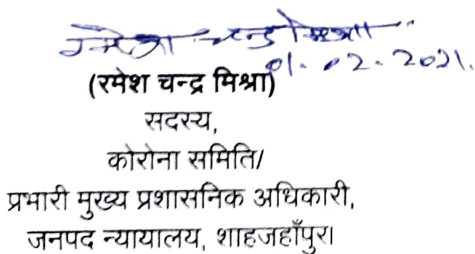 रमेश चन्द्र मिश्रा
01.02.2021.
(रमेश चन्द्र मिश्रा)
सदस्य,
कोरोना समिति/
प्रभारी मुख्य प्रशासनिक अधिकारी,
जनपद न्यायालय, शाहजहाँपुर।